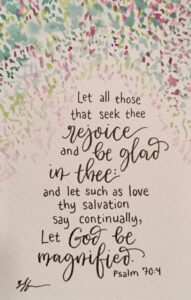 Let all those
that seek thee
rejoice
and be glad
in thee:
and let such as love
thy salvation
say continually,
Let God be
magnified.
Psalm 70:4